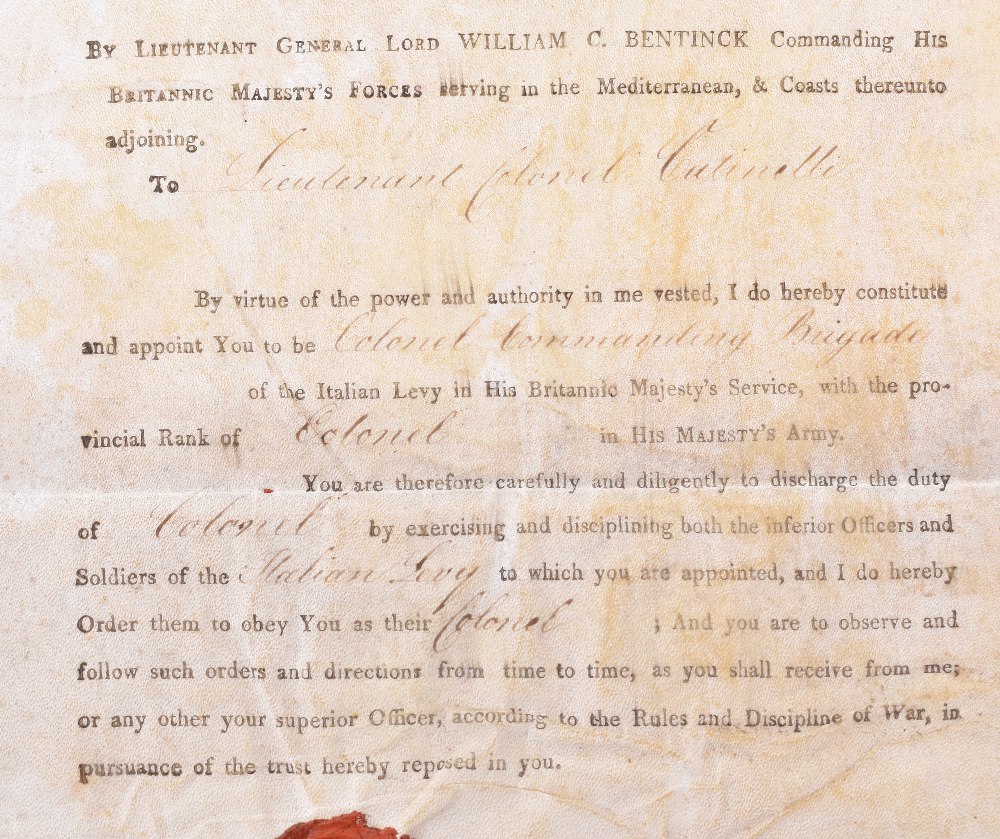 By Lieutenant General Lord WILLIAM C. BENTINCK Commanding His
Britannic Majesty's Forces serving in the Mediterranean, & Coasts thereunto
adjoining.
To Lieutenant Colonel Catinelli
By virtue of the power and authority in me vested, I do hereby constitute
and appoint You to be Colonel Commanding Brigade
of the Italian Levy in His Britannic Majesty's Service, with the pro-
vincial Rank of Colonel in His Majesty's Army.
You are therefore carefully and diligently to discharge the duty
of Colonel by exercising and disciplining both the inferior Officers and
Soldiers of the Italian Levy to which you are appointed, and I do hereby
Order them to obey You as their Colonel ; And you are to observe and
follow such orders and directions from time to time, as you shall receive from me;
or any other your superior Officer, according to the Rules and Discipline of War, in
pursuance of the trust hereby reposed in you.